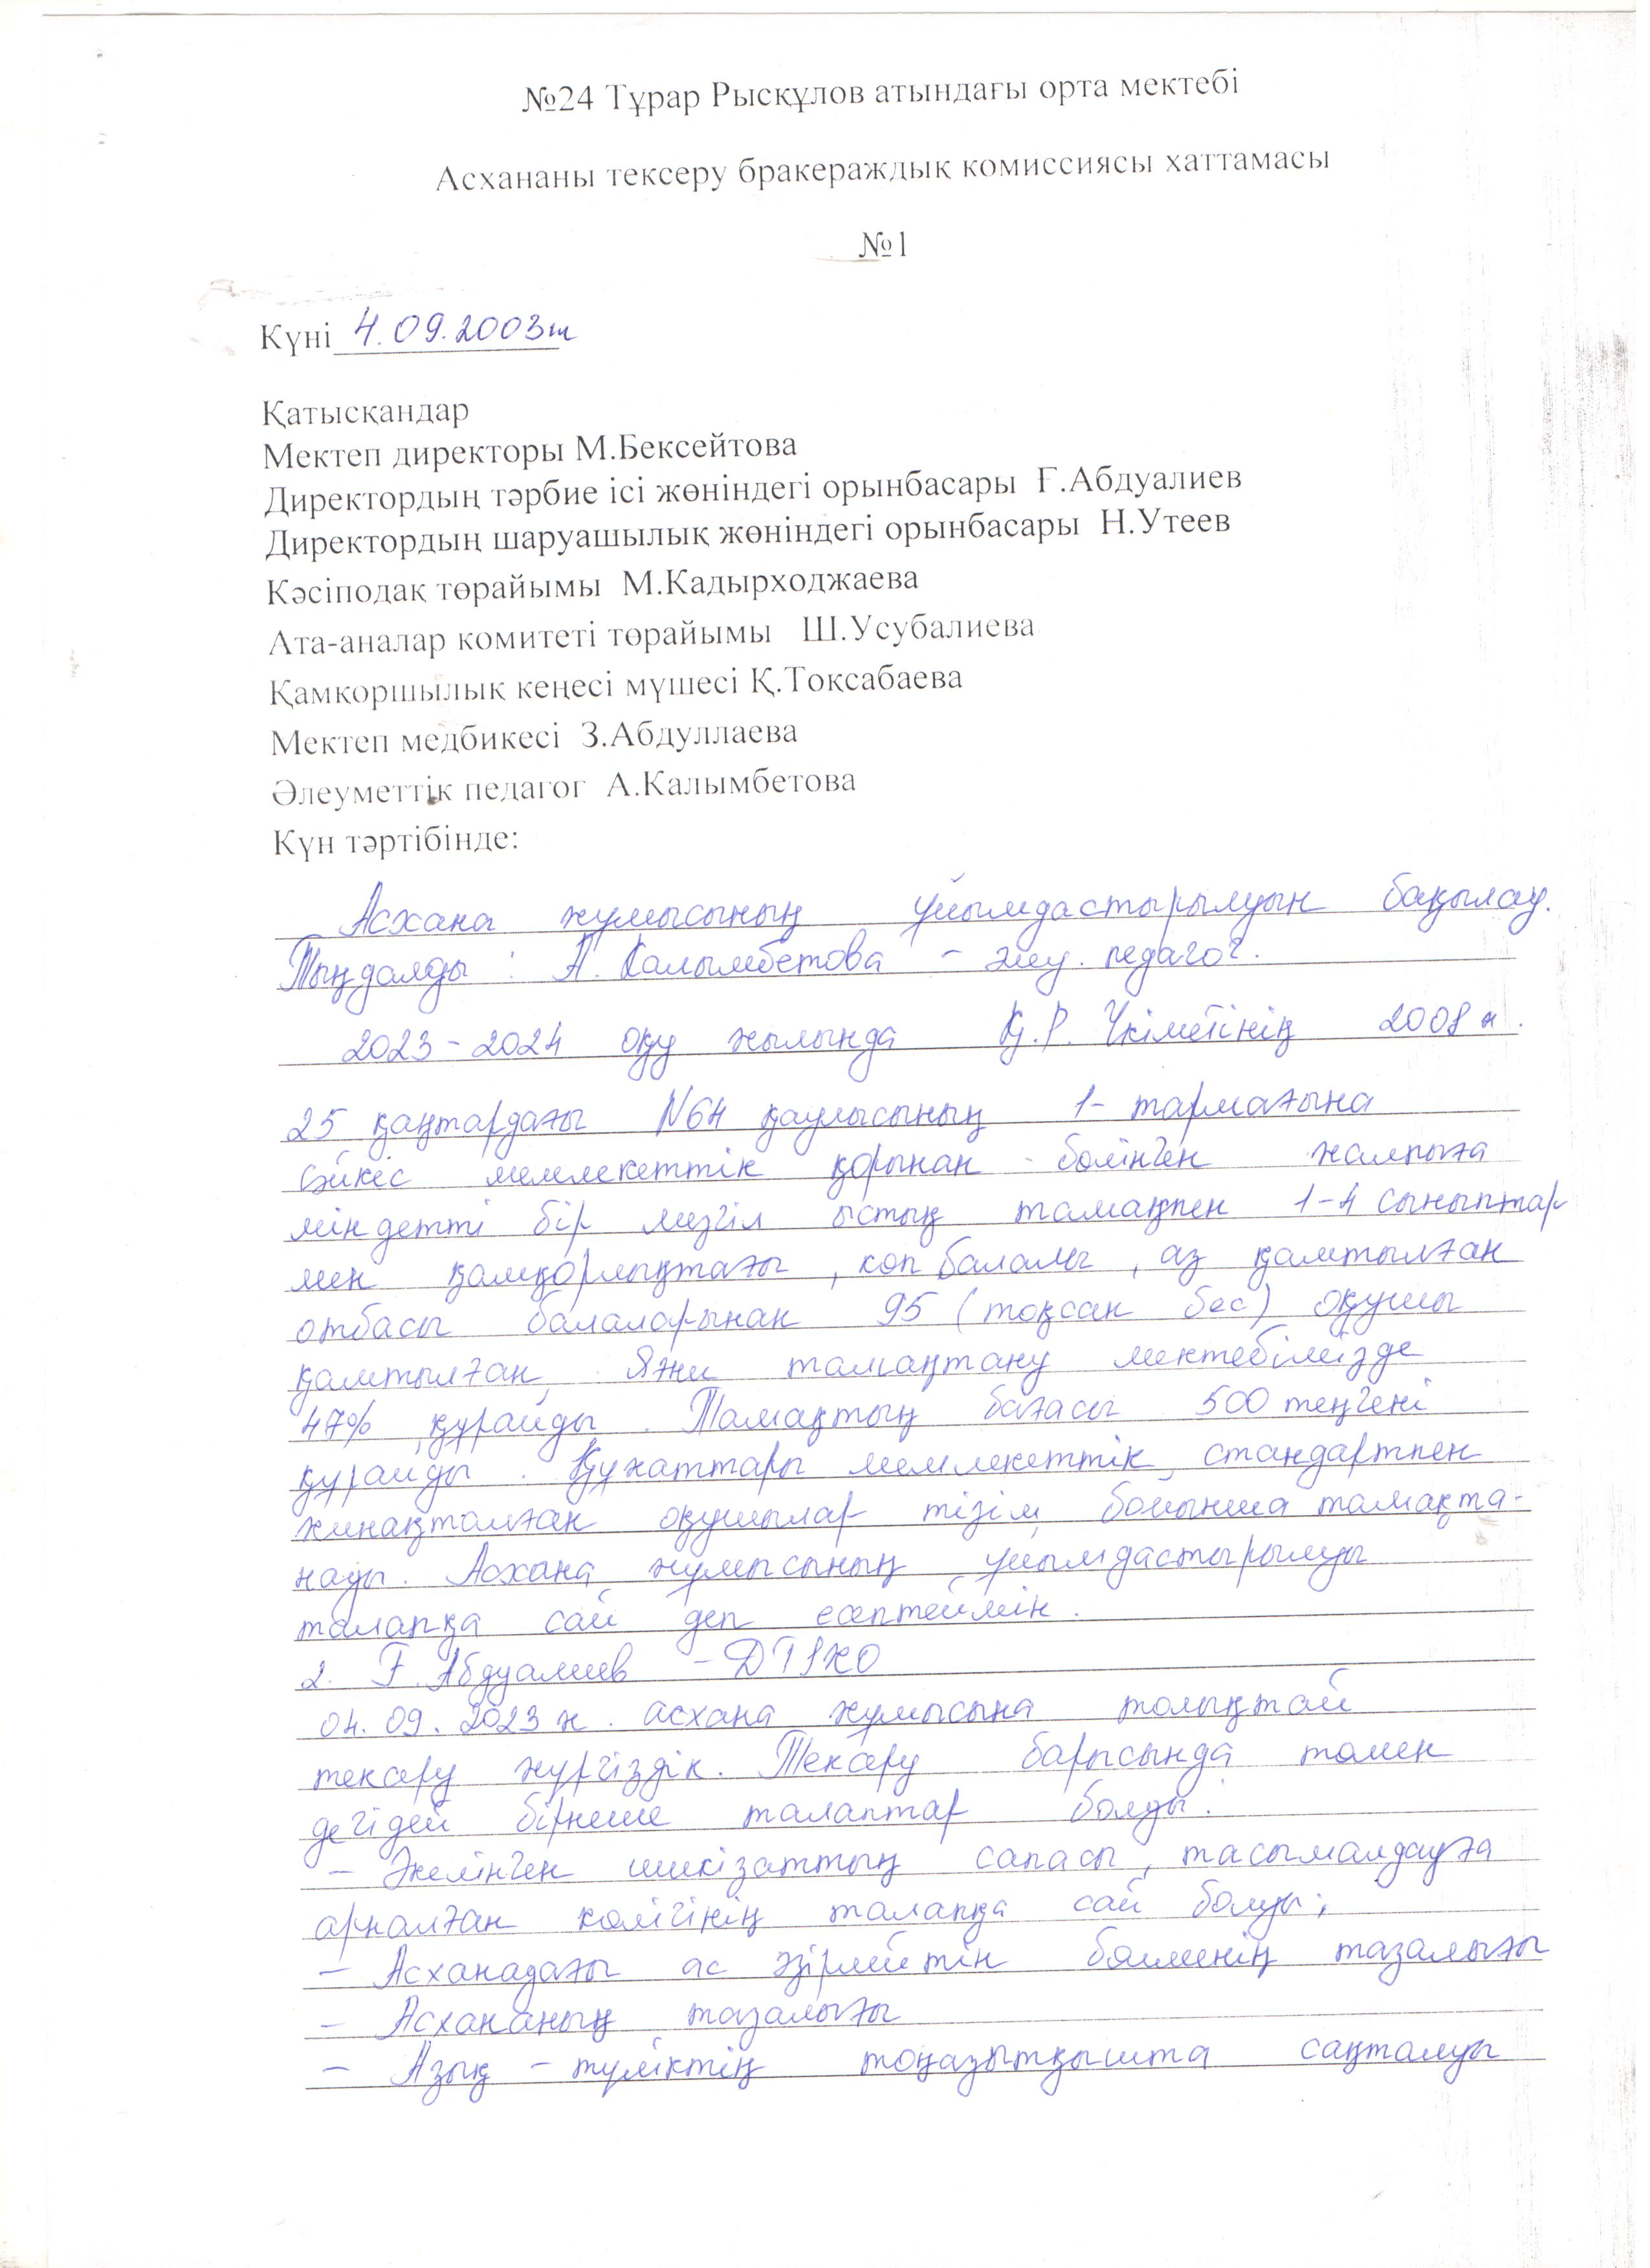 №24 Тұрар Рысқұлов атындағы орта мектебі
Асхананы тексеру бракераждық комиссиясы хаттамасы
№1
Күні 4.09.2003ж
Қатысқандар
Мектеп директоры М.Бексейтова
Директордың тәрбие ісі жөніндегі орынбасары Ғ.Абдуалиев
Директордың шаруашылық жөніндегі орынбасары Н.Утеев
Кәсіподақ төрайымы М.Кадырходжаева
Ата-аналар комитеті төрайымы Ш.Усубалиева
Қамқоршылық кеңесі мүшесі Қ.Тоқсабаева
Мектеп медбикесі З.Абдуллаева
Әлеуметтік педагог А.Калымбетова
Күн тәртібінде:
Асхана жұмысының ұйымдастырылуын бақылау.
Тыңдалды : А. Калымбетова – әлеу. педагог.
2023-2024 оқу жылында Қ.Р. Үкіметінің 2008 ж.
25 қаңтардағы N64 қаулысының 1- тармағына
сәйкес мемлекеттік қорынан бөлінген жалпыға
міндетті бір мезгіл ыстық тамақпен 1-4 сыныптар
мен қамқорлықтағы, көп балалы, аз қамтылған
отбасы балаларынан 95 (тоқсан бес) оқушы
қамтылған, Яғни тамақтану мектебімізде
47% құрайды. Тамақтың бағасы 500 теңгені
құрайды. Құжаттары мемлекеттік стандартпен
жинақталған оқушылар тізім бойынша тамақта-
нады. Асхана жұмысының ұйымдастырылуы
талапқа сай деп есептеймін.
2. Ғ. Абдуалиев – ДТІЖО
04.09.2023 ж. асхана жұмысына толықтай
тексеру жүргіздік. Тексеру барысында төмен
дегідей бірнеше талаптар болды.
– Әкелінген шикізаттың сапасы, тасымалдауға
арналған көлігінің талапқа сай болуы;
– Асханадағы ас әзірлейтін бөлменің тазалығы
– Асхананың тазалығы
– Азық – түліктің тоңазытқышта сақталуы